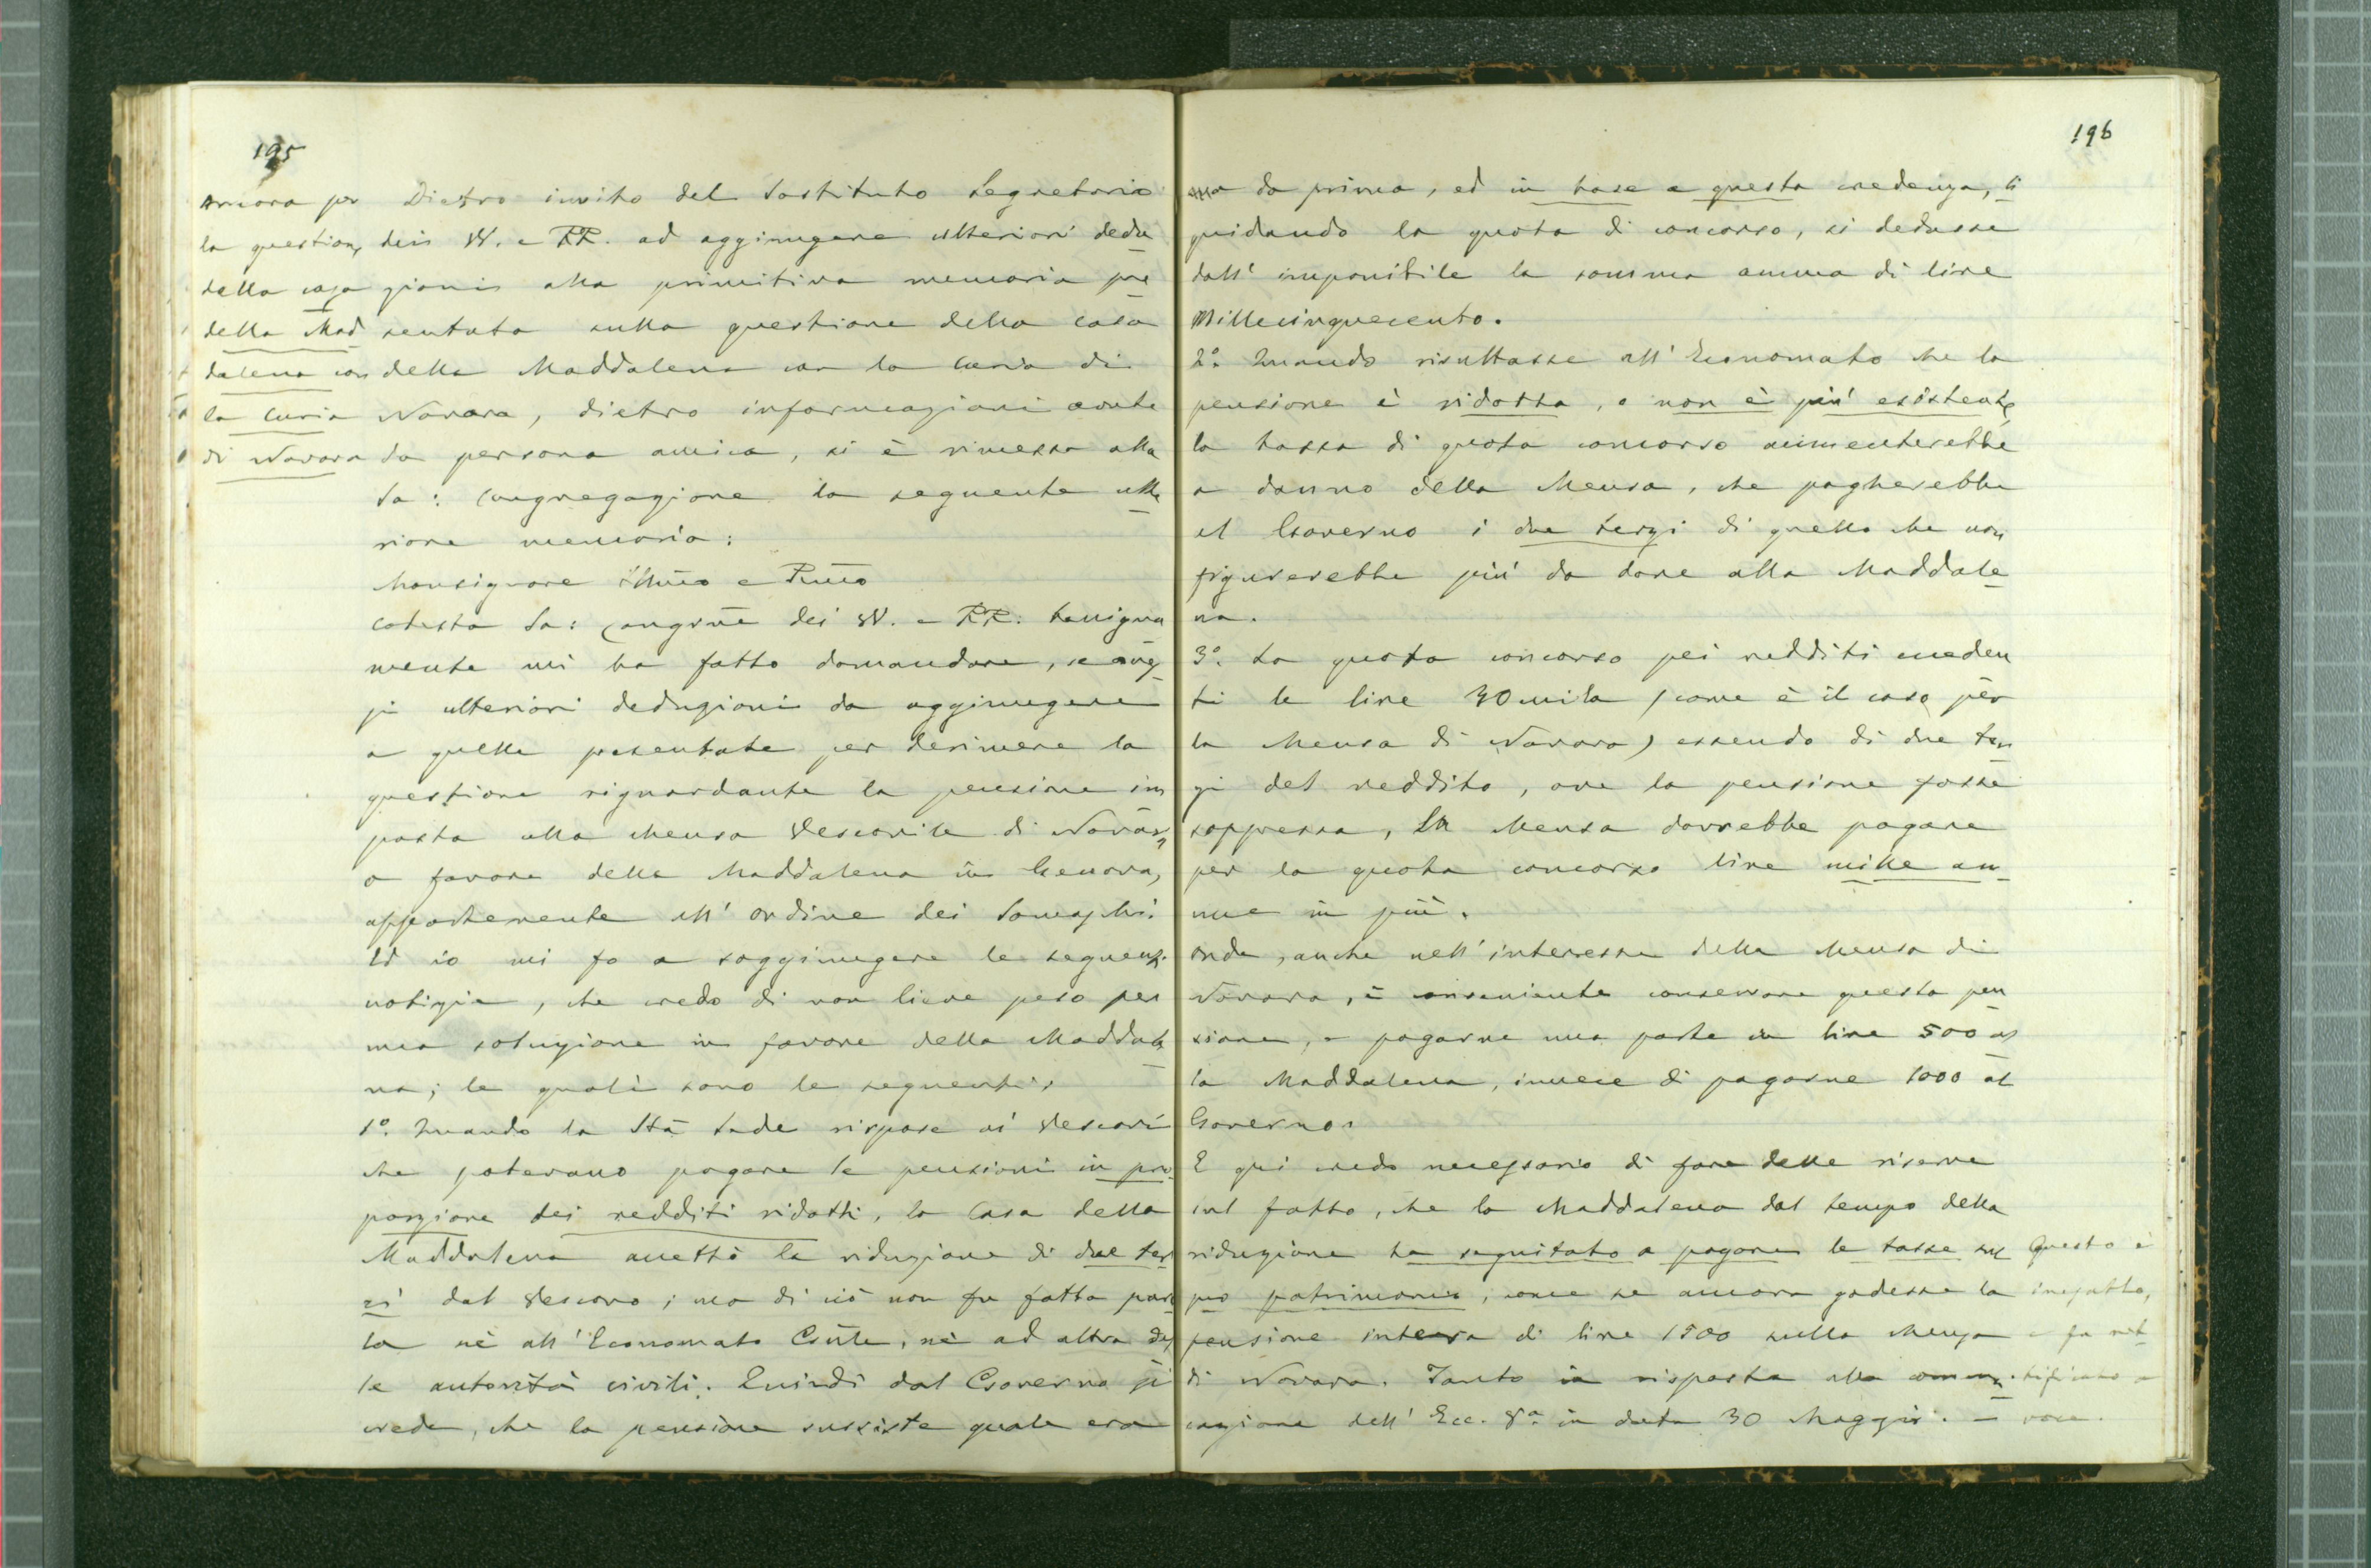 195
Ancora per
la question,
della casa
della Mad
dalena con
la Curia
di Novara
Dietro invito del Sostituto Segretario
dei VV. e RR. ad aggiungere ulteriori dedu
zioni alla primitiva memoria pre
sentata sulla questione della casa
della Maddalena con la Curia di
Novara, dietro informazioni avute
da persona amica, si è rimessa alla
Sa: Congregazione la seguente ulte
riore memoria:
Monsignore Illmo e Rmo
Cotesta Sa: Congrne dei VV. e RR. benigna
mente mi ha fatto domandare, se aves
si ulteriori deduzioni da aggiungere
a quelle presentate per derimere la
questione riguardante la pensione im
posta alla Mensa Vescovile di Novara,
a favore della Maddalena in Genova,
appartenente all' ordine dei Somaschi.
Ed io mi fo a soggiungere le seguenti
notizie, che credo di non lieve peso per
una soluzione in favore della Maddale
na; le quali sono le seguenti:
1º. Quando la Sta Sede rispose ai Vescovi
che potevano pagare le pensioni in pro
porzione dei redditi ridotti, la Casa della
Maddalena accettò la riduzione di due ter
zi dal Vescovo; ma di ciò non fu fatta paro
la nè all' Economato Gnle, nè ad altra del
le autorità civili. Quindi dal Governo si
crede, che la pensione sussiste quale era
196
da prima, ed in base a questa credenza, li
quidando la quota di concorso, si dedusse
dall' imponibile la somma annua di lire
Millecinquecento.
2º. Quando risultasse all' Economato che la
pensione è ridotta, o non è più esistente,
la tassa di quota concorso aumenterebbe
a danno della Mensa, che pagherebbe
al Governo i due terzi di quello che non
figurerebbe più da dare alla Maddale
na.
3º. La quota concorso pei redditi eceden
ti le lire 30 mila (come è il caso per
la Mensa di Novara) essendo di due ter
zi del reddito, ove la pensione fosse
soppressa, la Mensa dovrebbe pagare
per la quota concorso lire mille an
nue in più.
Onde, anche nell' interesse della Mensa di
Novara, è conveniente conservare questa pen
sione, e pagarne una parte in lire 500 al
la Maddalena, invece di pagarne 1000 al
Governo.
E qui credo necessario di fare delle riserve
sul fatto, che la Maddalena dal tempo della
riduzione ha seguitato a pagare le tasse sul
suo patrimonio, come se ancora godesse la
pensione intera di lire 1500 sulla Mensa
di Novara. Tanto in risposta alla comuni
cazione dell' Ecc. Va. in data 30 Maggio. —
Questo è
inesatto,
e fu ret
tificato a
voce.